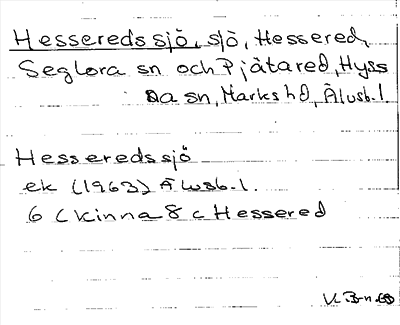 Hessereds sjö, sjö, Hessered,
Seglora sn och Pjätared, Hyss
na sn, Marks hd, Älvsb. l.
Hessereds sjö
ek (1963) Älvsb. l.
6 c Kinna 8 c Hessered